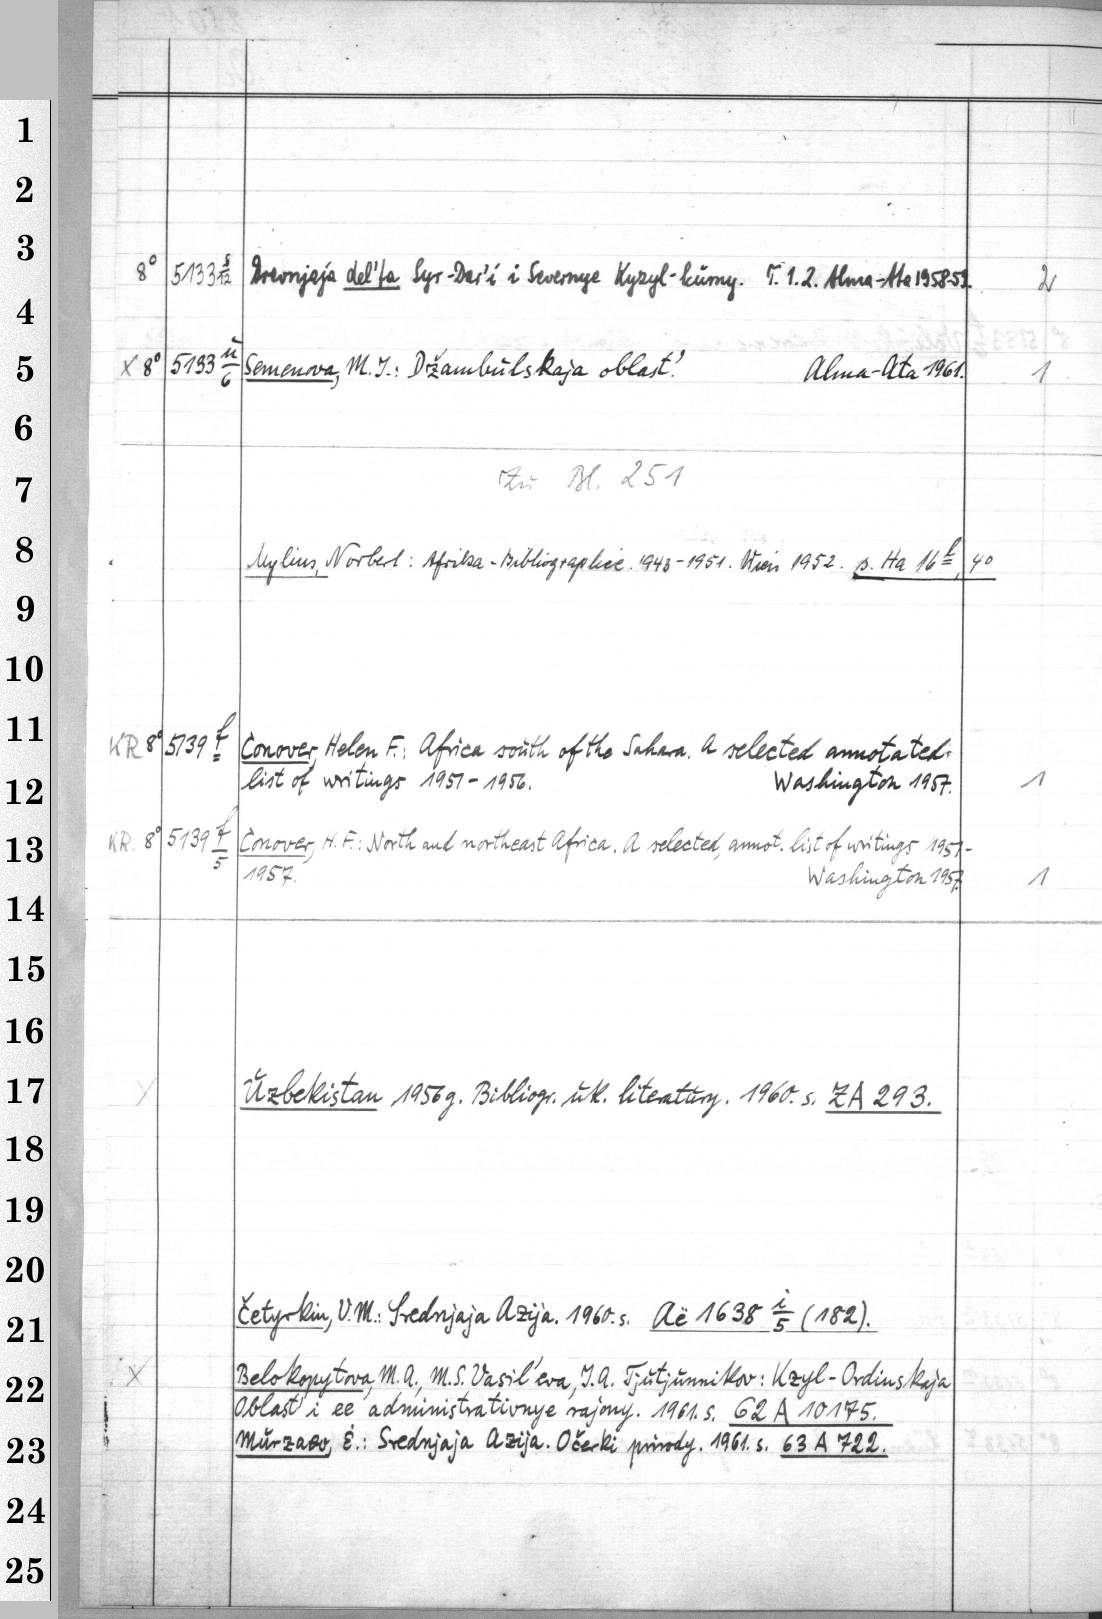 1
2
3
8° 5133 s/12 Drevnjaja del'ta Syr-Dar'i i Severnye Kyzyl-kumy. T.1.2. Alma-Ata 1958-59. 2
4
5 x 8° 5133 u/6 Semenova, M.I.: Džambulskaja oblast'. Alma-Ata 1961. 1
6
7 Zu Bl. 251
8 Mylius, Norbert: Afrika-Bibliographie. 1943-1951. Wien 1952. s. Ha 16 f, 40
9
10
11 KR 8° 5139 f Conover, Helen F.: Africa south of the Sahara. A selected annotated
12 list of writings 1951-1956. Washington 1957. 1
13 KR. 8° 5139 f/5 Conover, H.F.: North and northeast Africa. A selected, annot. list of writings 1951-
1957. Washington 1957 1
14
15
16
17 Uzbekistan 1956g. Bibliogr. uk. literatury. 1960. s. ZA 293.
18
19
20
21 Četyrkin, V.M.: Srednjaja Azija. 1960. s. Aë 1638 i/5 (182).
22 x Belokopytova, M.A., M.S. Vasil'eva, I.A. Tjutjunnikov: Kzyl-Ordinskaja
Oblast' i ee administrativnye rajony. 1961. s. 62 A 10175.
23 Murzaev, Ė.: Srednjaja Azija. Očerki prirody. 1961. s. 63 A 722.
24
25